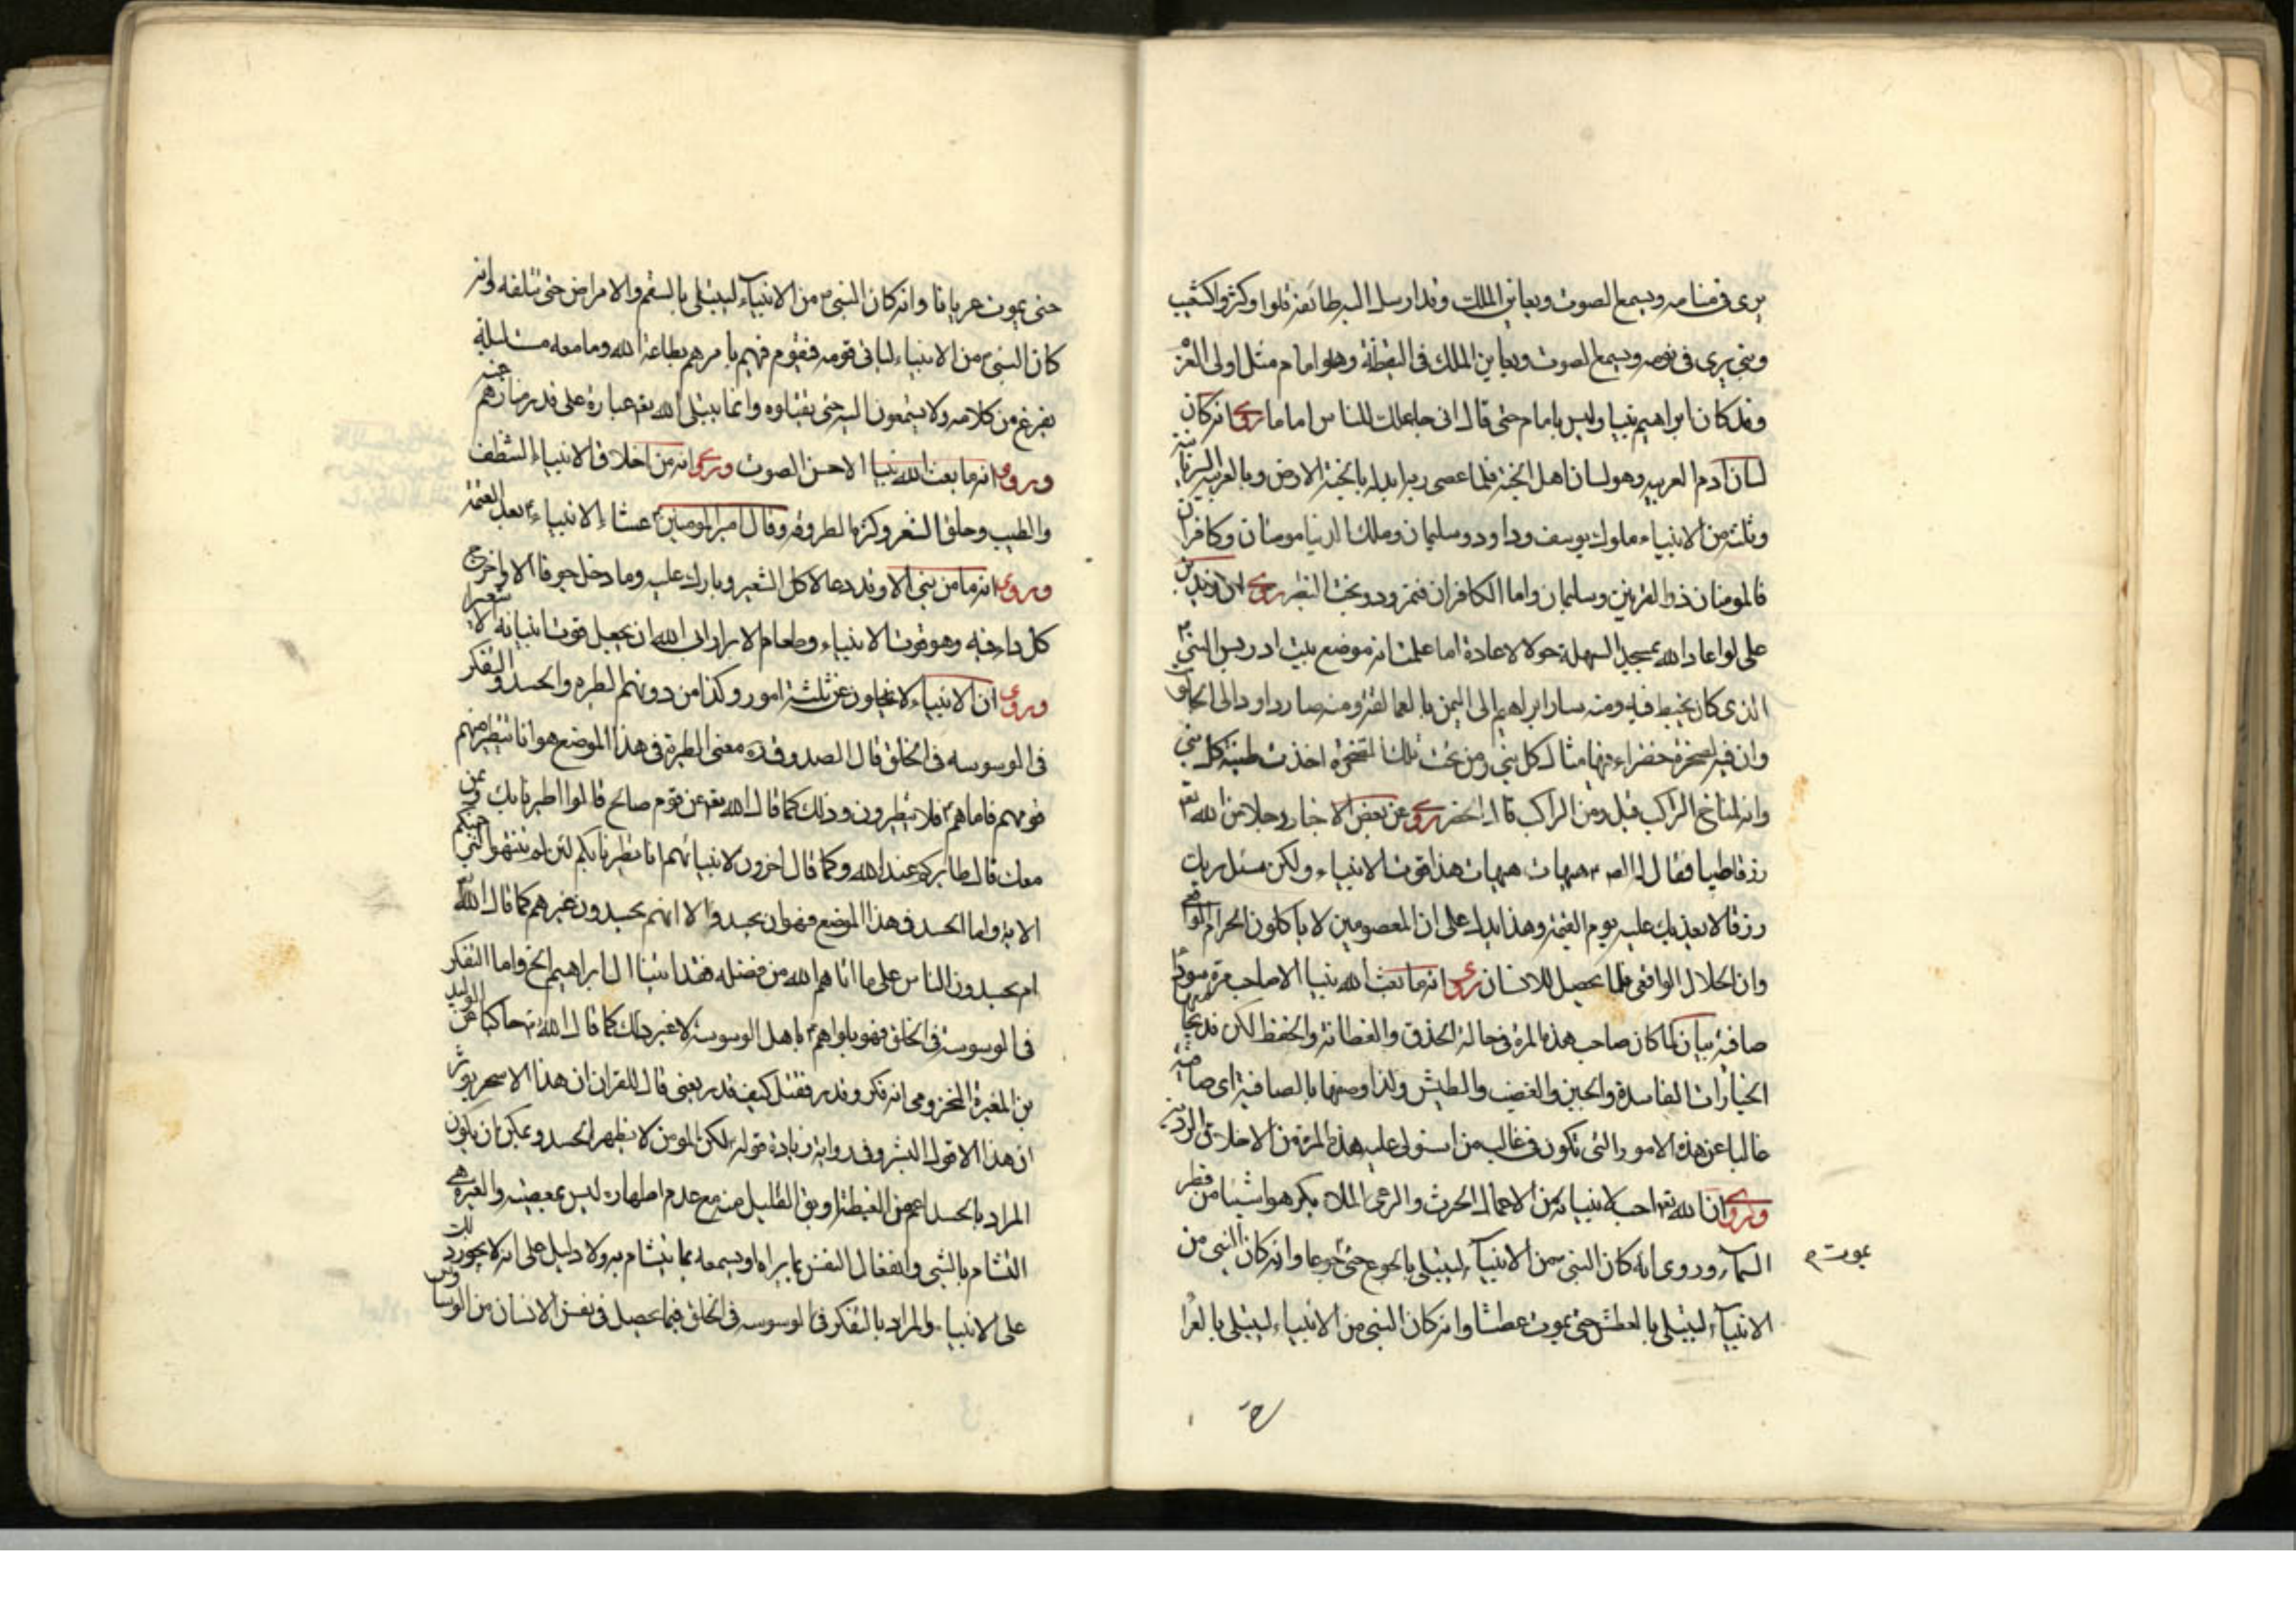 يرى فى منامه ويسمع الصوت ويعاين الملك وقد ارسل اليه طائفة قلوا او كثروا كشعيب
ونبى يرى فى نومه ويسمع الصوت ويعاين الملك فى اليقظة وهو امام مثل اولى العزم
وقد كان ابراهيم نبيا وليس بامام حتى قال انى جاعلك للناس اماما روى انه كان
لسان ادم العربيه وهو لسان اهل الجنة فلما عصى ربه ابدله بالجنة الارض وبالعربية السريانية
وثلثة من الانبياء ملوك يوسف وداود وسليمان وملك الدنيا مومنان وكافران
فالمومنان ذو القرنين وسليمان واما الكافران فنمرود وبخت النصر روى ان زيد بن
على لو اعاد الله بمسجد السهلة حولا لاعاده اما علمت انه موضع بيت ادريس النبى
الذى كان يخيط فيه ومنه سار ابراهيم الى اليمن بالعمالقة ومنه صار داود الى جالوت
وان فيه لصخرة خضراء فيها مثال كل نبى ومن تحت تلك الصخرة اخذت طينة كل نبى
وانه لمناخ الراكب قيل ومن الراكب قال الخضر روى عن بعض الاخيار رجلا من الله تعالى
رزقا طيبا فقال له هيهات هيهات هذا قوت الانبياء ولكن سئل ربك
رزقا لا يعذبك عليه يوم القيمة وهذا يدل على ان المعصومين لا ياكلون الحرام الواقعى
وان الحلال الواقعى قلما يحصل للانسان روى انه ما بعث الله نبيا الا صاحب مرة سوداء
صافية بيان لما كان صاحب هذه المرة فى حالة الحذق والفطانة والحفظ لكن قد يجامعها
الخيالات الفاسدة والجبن والغضب والطيش ولذا وصفها بالصافية اى صافية
غالبا عن هذه الامور التى تكون فى غالب من استولى عليه هذه المرة من الاخلاق الرديه
وروى ان الله تعالى احب لانبيائه من الاعمال الحرث والرعى لئلا يكرهوا شيئا من قطر
السماء وروى انه كان النبى من الانبياء ليبتلى بالجوع حتى يموت جوعا وانه كان النبى من
الانبياء ليبتلى بالعطش حتى يموت عطشا وانه كان النبى من الانبياء ليبتلى بالعراء
حتى يموت عريانا وانه كان النبى من الانبياء ليبتلى بالسقم والامراض حتى تتلفه وانه
كان النبى من الانبياء لياتى قومه فيقوم فيهم يامرهم بطاعة الله وما معه مبيت ليلة
يفرغ من كلامه ولا يستمعون اليه حتى يقتلوه وانما يبتلى الله تعالى عباده على قدر منازلهم عنده
وروى انه ما بعث الله نبيا الا حسن الصوت وروى انه من اخلاق الانبياء التنظف
والطيب وحلق الشعر وكثرة الطروقة وقال امير المومنين عشاء الانبياء بعد العتمة
وروى انه ما من نبى الا وقد دعا لاكل الشعير وبارك عليه وما دخل جوفا الا واخرج
كل داء فيه وهو قوت الانبياء وطعام الابرار ابى الله ان يجعل قوت انبيائه الا شعيرا
وروى ان الانبياء لا يخلون عن ثلثة امور وكذا من دونهم الطيره والحسد والتفكر
فى الوسوسه فى الخلق قال الصدوق قده معنى الطيرة فى هذا الموضع هو انما تتطير منهم
قومهم فاما هم فلا يتطيرون وذلك كما قال الله تعالى عن قوم صالح قالوا اطيرنا بك وبمن
معك قال طائركم عند الله وكما قال اخرون لانبيائهم انا تطيرنا بكم لئن لم تنتهوا لنرجمنكم
الاية واما الحسد فى هذا الموضع فهو ان يحسدوا لا انهم يحسدون غيرهم كما قال الله تعالى
ام يحسدون الناس على ما اتاهم الله من فضله فقد اتينا ال ابراهيم الخ واما التفكر
فى الوسوسة فى الخلق فهو بلواهم باهل الوسوسة لا غير ذلك كما قال الله تعالى حاكيا عن الوليد
بن المغيرة المخزومى انه فكر وقدر فقتل كيف قدر يعنى قال للقران ان هذا الا سحر يوثر
ان هذا الا قول البشر وفى رواية زيادة قوله لكن المومن لا يظهر الحسد ويمكن ان يكون
المراد بالحسد اعم من الغبطة او يق القليل منه مع عدم اظهاره ليس بمعصية والطيرة هى
التشام بالشى وانفعال النفس بما يراه او يسمعه مما يتشام به ولا دليل على انه لا يجوز ذلك
على الانبياء والمراد بالتفكر فى الوسوسه فى الخلق فيما يحصل فى نفس الانسان من الوساوس